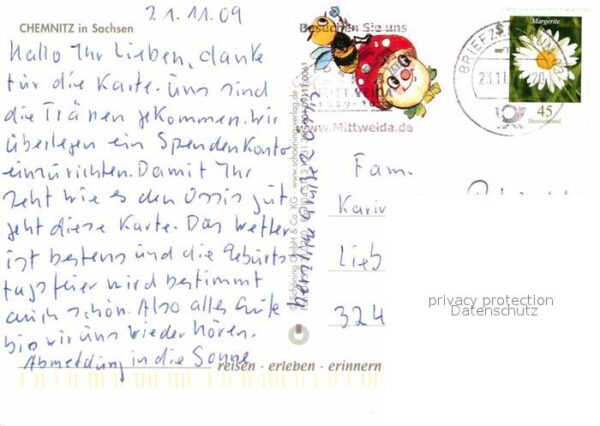 21.11.09
CHEMNITZ in Sachsen
Hallo Ihr Lieben, danke
für die Karte. Uns sind
die Tränen gekommen. Wir
überlegen ein Spendenkonto
einzurichten. Damit Ihr
seht wie es den Ossis gut
geht diese Karte. Das Wetter
ist bestens und die Geburts
tagsfeier wird bestimmt
auch schön. Also alles Gute
bis wir uns wieder hören.
Abmeldung in die Sonne
reisen - erleben - erinnern
Besuchen Sie uns
MITTWEIDA
www.Mittweida.de
BRIEFZENTRUM
Margerite
45
Deutschland
Schöning GmbH & Co. KG
www.schoening-verlag.de
Fam.
Karin
Lieb
324
privacy protection
Datenschutz